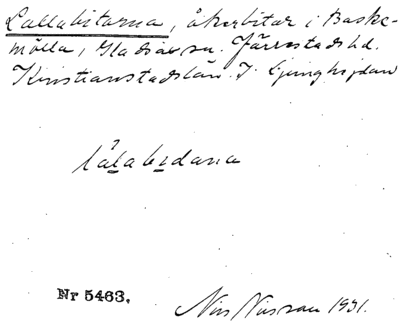 Lallabitarna, åkerbitar i Baske-
mölla, Gladsax sn. Järrestads hd.
Kristianstads län. I Ljunghejdan
Nr 5463.
Nils Nilsson 1931.